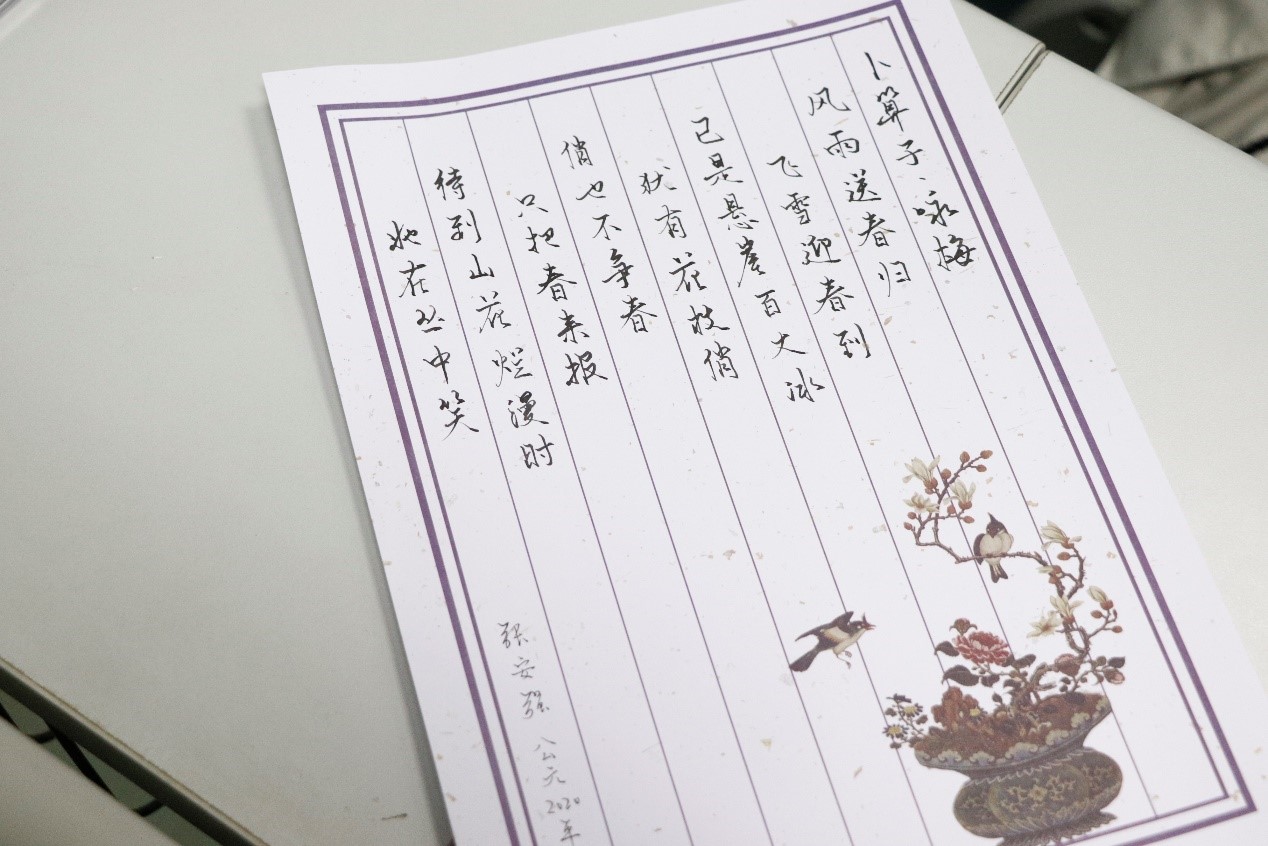 卜算子·咏梅
风雨送春归
飞雪迎春到
已是悬崖百丈冰
犹有花枝俏
俏也不争春
只把春来报
待到山花烂漫时
她在丛中笑
张安强 公元2020年